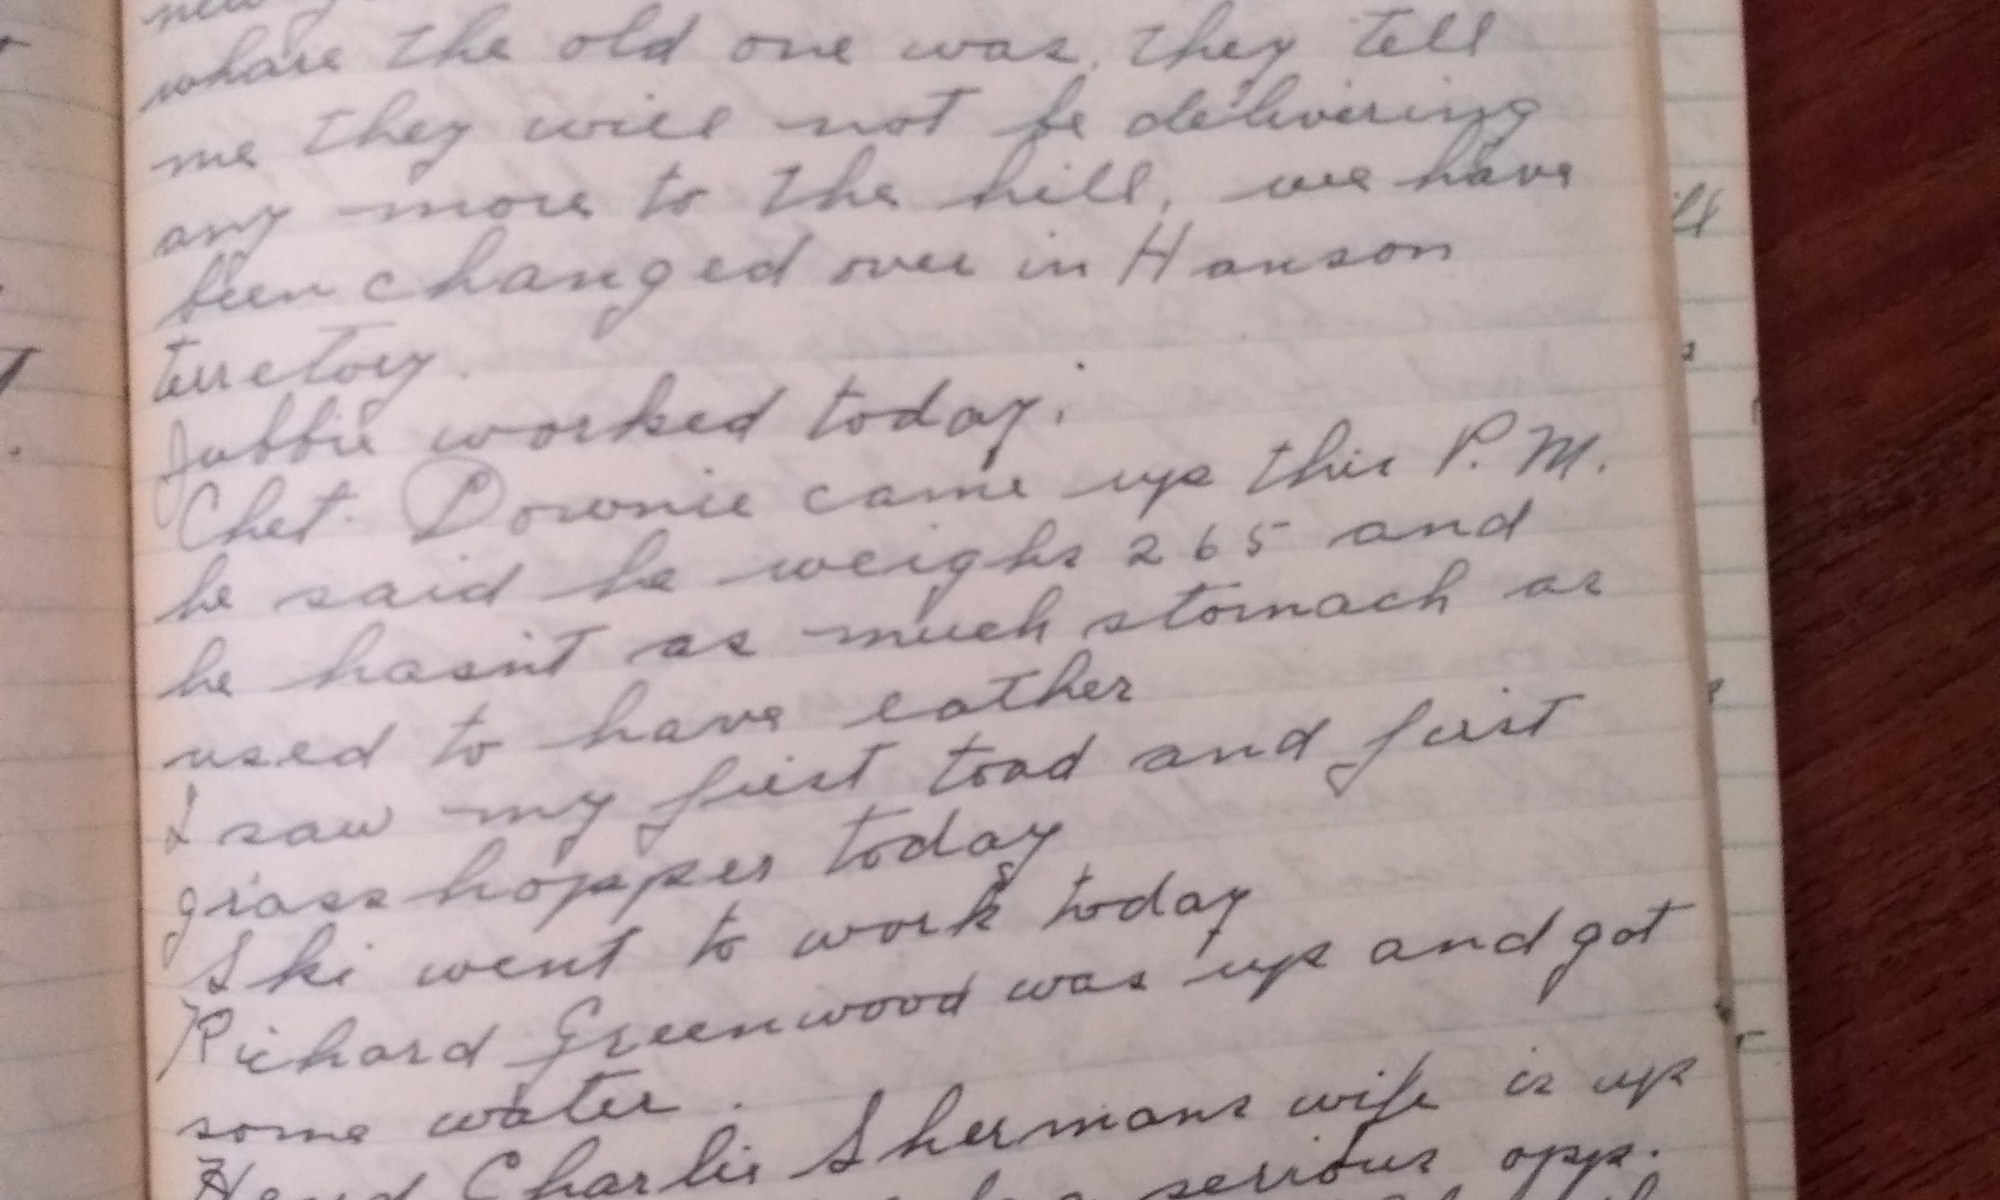 whare the old one was, they tell
me they will not be delivering
any more to the hill, we have
been changed over in Hanson
terretory.
Jubbie worked today.
Chet. Downie came up this P.M.
he said he weighs 265 and
he hasn't as much stomach as
used to have eather
I saw my first toad and first
grass hopper today
Ski went to work today
Richard Greenwood was up and got
some water.
Heard Charlie Shermans wife is up
serious opp.